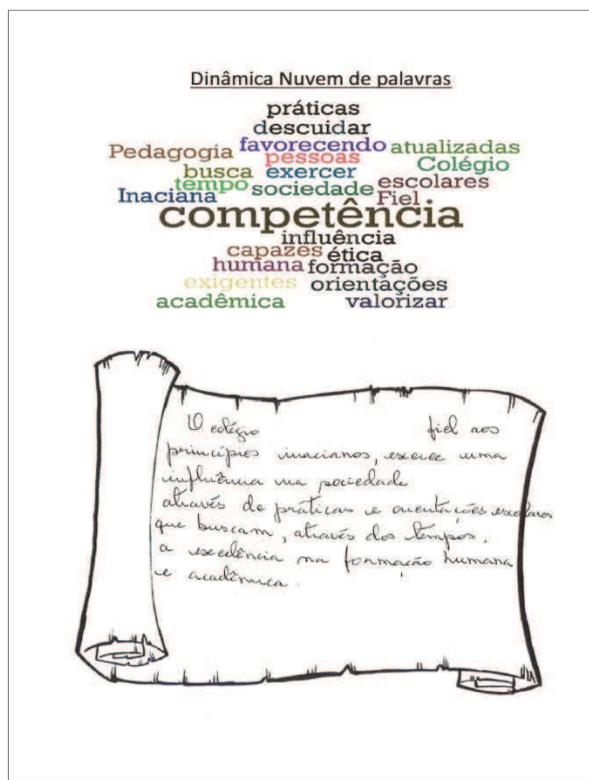 Dinâmica Nuvem de palavras
práticas
descuidar
favorecendo atualizadas
Pedagogia pessoas Colégio
busca exercer
tempo sociedade escolares
Inaciana Fiel
competência
influência
capazes ética
humana formação
exigentes orientações
acadêmica valorizar
O colégio fiel aos
princípios inacianos, exerce uma
influência na sociedade
através de práticas e orientações escolares
que buscam, através dos tempos,
a excelência na formação humana
e acadêmica.